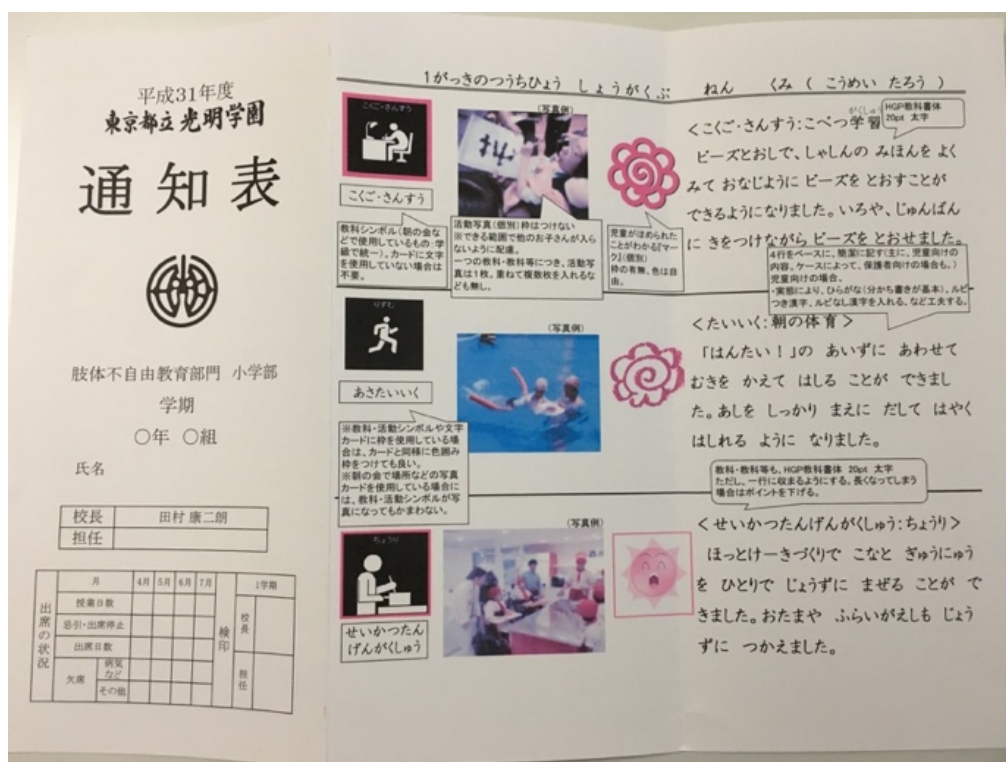 平成31年度
東京都立光明学園
通知表
肢体不自由教育部門 小学部
学期
○年 ○組
氏名
校長 田村 康二朗
担任
出席の状況
月 4月 5月 6月 7月
授業日数
忌引・出席停止
出席日数
欠席
病気など
その他
検印
1学期
校長
担任
1がっきのつうちひょう しょうがくぶ ねん くみ ( こうめい たろう )
こくご・さんすう
(写真例)
こくご・さんすう
教科シンボル(朝の会な
どで使用しているもの:学
級で統一)。カードに文字
を使用していない場合は
不要。
活動写真(個別)枠はつけない
※できる範囲で他のお子さんが入ら
ないように配慮。
一つの教科・教科等につき、活動写
真は1枚。重ねて複数枚を入れるな
ども無し。
児童がほめられた
ことがわかる『マー
ク』(個別)
枠の有無、色は自
由。
HGP教科書体
20pt 太字
<こくご・さんすう:こべつ学習
がくしゅう
ビーズとおしで、しゃしんの みほんを よく
みて おなじように ビーズを とおすことが
できるようになりました。いろや、じゅんばん
に きをつけながら ビーズを とおせました。
4行をベースに、簡潔に記す(主に、児童向けの
内容。ケースによって、保護者向けの場合も。)
児童向けの場合、
・実態により、ひらがな(分かち書きが基本)、ルビ
つき漢字、ルビなし漢字を入れる、など工夫する。
りずむ
(写真例)
あさたいいく
※教科・活動シンボルや文字
カードに枠を使用している場
合は、カードと同様に色囲み
枠をつけても良い。
※朝の会で場所などの写真
カードを使用している場合に
は、教科・活動シンボルが写
真になってもかまわない。
<たいいく:朝の体育>
「はんたい!」の あいずに あわせて
むきを かえて はしる ことが できまし
た。あしを しっかり まえに だして はやく
はしれる ように なりました。
教科・教科等も、HGP教科書体 20pt 太字
ただし、一行に収まるようにする。長くなってしまう
場合はポイントを下げる。
ちょうり
(写真例)
せいかつたん
げんがくしゅう
<せいかつたんげんがくしゅう:ちょうり>
ほっとけーきづくりで こなと ぎゅうにゅう
を ひとりで じょうずに まぜる ことが で
きました。おたまや ふらいがえしも じょう
ずに つかえました。